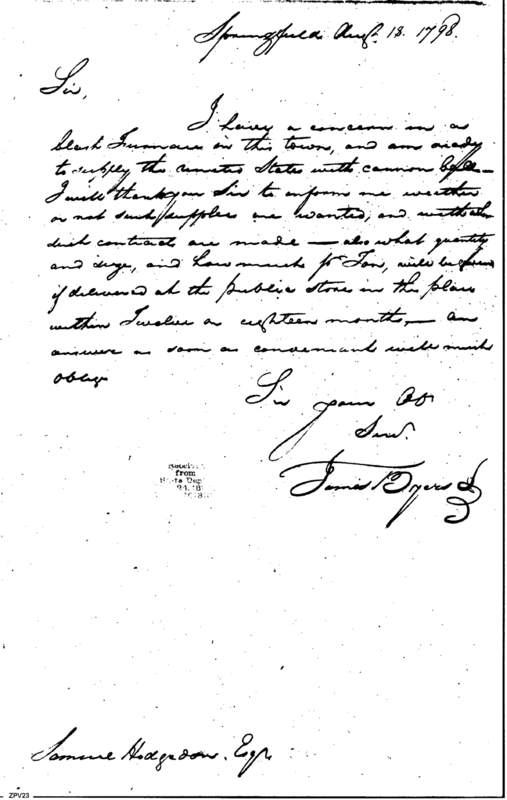 Springfield Augt. 18. 1798.
Sir,
I have a concern in a
blast Furnace in this town, and am ready
to supply the United States with cannon balls
I will thank you Sir to inform me weather
or not such supplies are wanted, and with whom
such contracts are made — also what quantity
and size, and how much pr Ton, will be given
if delivered at the public store in the place
within Twelve or eighteen months, — an
answer as soon as convenient will much
oblige
Sir your Ob
Serv.
James Byers
Received
from
State Dep
Samuel Hodgsdon. Esqr
ZPV23